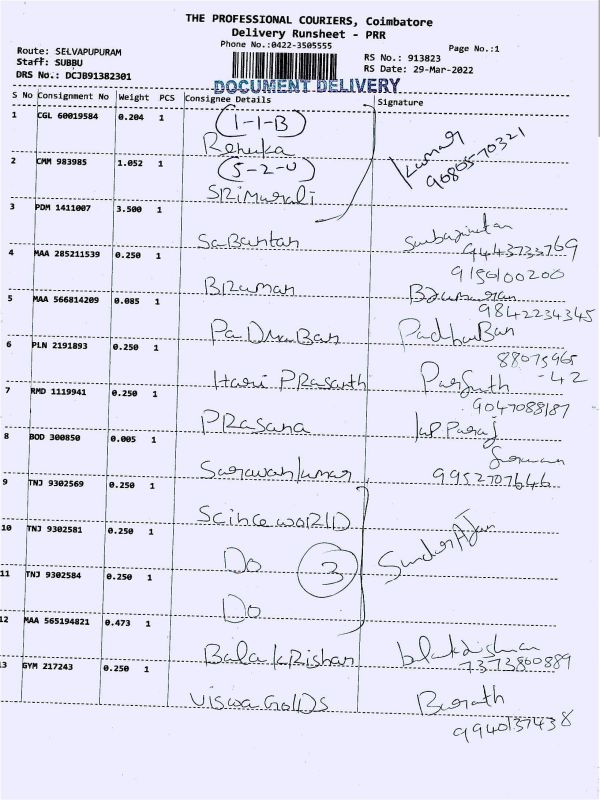 THE PROFESSIONAL COURIERS, Coimbatore
Delivery Runsheet - PRR
Phone No.:0422-3505555
Page No.:1
Route: SELVAPUPURAM
Staff: SUBBU
DRS No.: DCJB91382301
RS No.: 913823
RS Date: 29-Mar-2022
DOCUMENT DELIVERY
S No Consignment No Weight PCS Consignee Details Signature
1 CGL 60019584 0.204 1 1-1-B
Renuka
Kumar
9080570321
2 CMM 983985 1.052 1 5-2-U
SRiMurali
3 PDM 1411007 3.500 1
Sabantan
9443733769
4 MAA 285211539 0.250 1
9150100200
BRuman
5 MAA 566814209 0.085 1
9842234345
PaDmaBan PadhuBan
6 PLN 2191893 0.250 1
88075965
-42
Hari PRasanth
7 RMD 1119941 0.250 1
9047088187
PRasana
8 BOD 300850 0.005 1
Sarawankumar
9952707646
9 TNJ 9302569 0.250 1
Scince WORLD
10 TNJ 9302581 0.250 1
Do 3
11 TNJ 9302584 0.250 1
Do
12 MAA 565194821 0.473 1
BalakRishan
7373800889
13 GYM 217243 0.250 1
Viswa GollDs Barath
9940137438